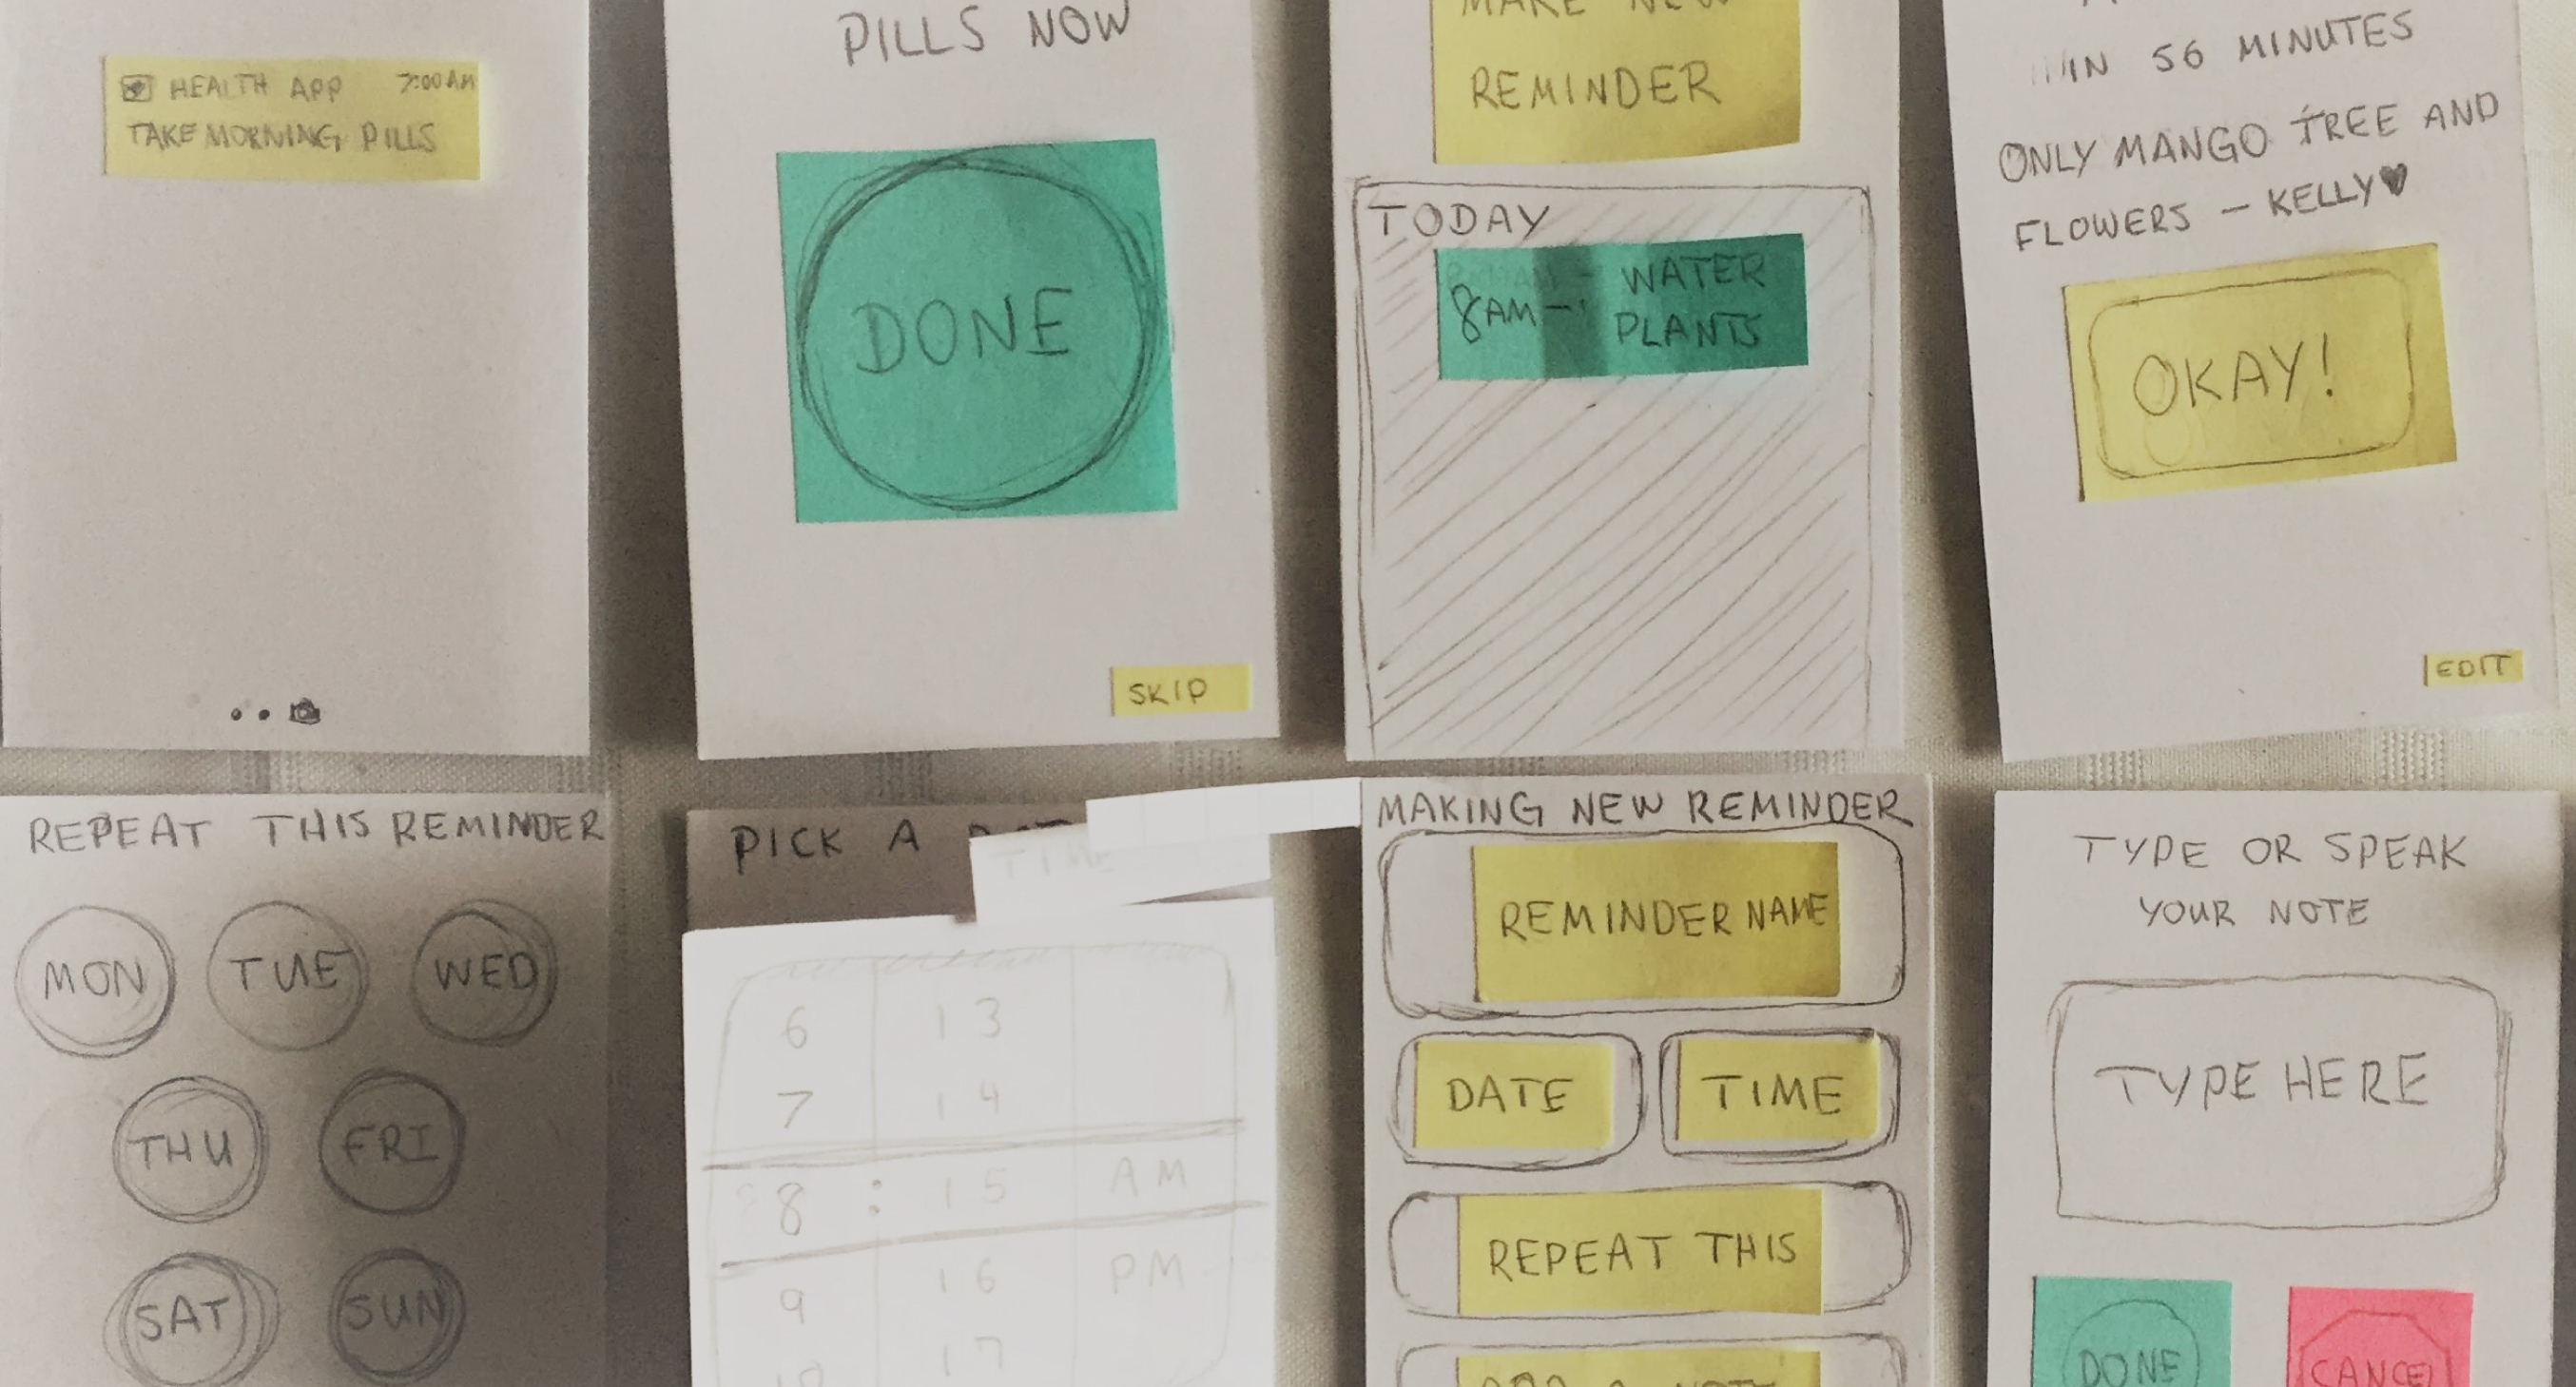 HEALTH APP 7:00AM
TAKE MORNING PILLS
PILLS NOW
DONE
SKIP
MAKE NEW
REMINDER
TODAY
8AM - WATER
PLANTS
IN 56 MINUTES
ONLY MANGO TREE AND
FLOWERS - KELLY♥
OKAY!
EDIT
REPEAT THIS REMINDER
MON TUE WED
THU FRI
SAT SUN
PICK A
TIME
6 13
7 14
8 : 15 AM
9 16 PM
10 17
MAKING NEW REMINDER
REMINDER NAME
DATE TIME
REPEAT THIS
ADD A NOTE
TYPE OR SPEAK
YOUR NOTE
TYPE HERE
DONE CANCEL